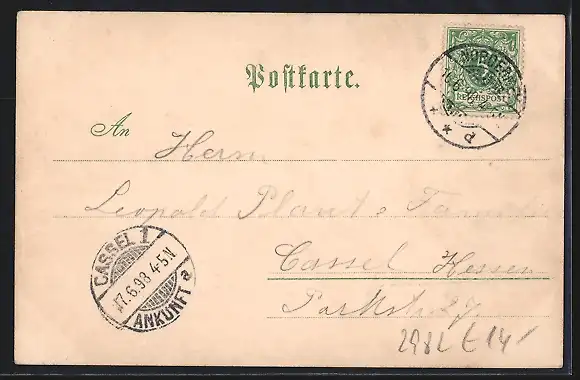 Postkarte.
NORDERNEY
REICHSPOST
d
An
Herrn
Leopold Plaut & Familie
Cassel Hessen
Parkstr. 27
CASSEL 1
17.6.98 4-5N
ANKUNFT a
298L € 14,-